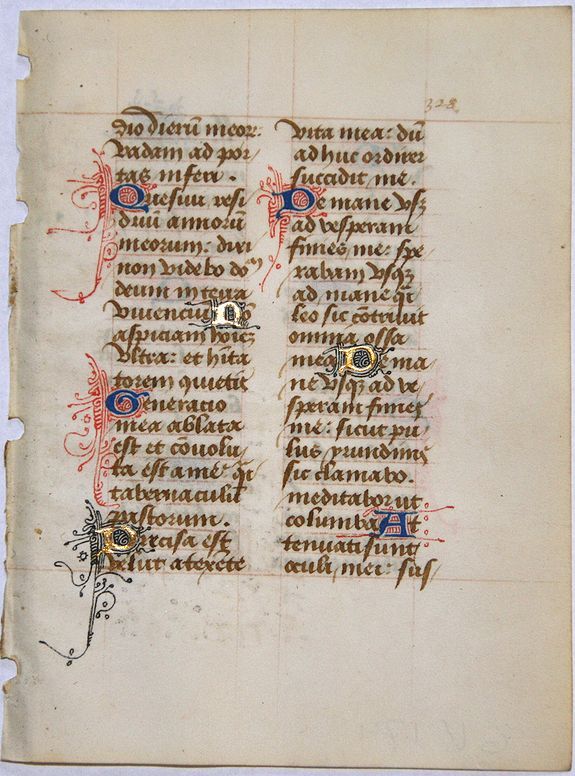 328
dio dierū meor:
Vadam ad por
tas inferi.
Quesiui resi
duū annorū
meorum: dixi
non videbo do(m)
deum in terra
viuenciū Nō
aspiciam hoīez
Vltra: et hita
torem quietis
Generacio
mea ablata
est et cōuolu
ta est a me: q̄i
tabernaculū
pastorum.
Precisa est
velut a texēte
vita mea: dū
adhuc ordirer
succidit me.
De mane vsqz
ad vesperam
finies me: spe
rabam vsqz
ad mane q̄i
leo sic cōtriuit
omnia ossa
mea De ma
ne vsqz ad ve
speram finies
me: sicut pu
lus yrundinis
sic clamabo.
meditabor ut
columba At
tenuati sunt
oculi mei: sus